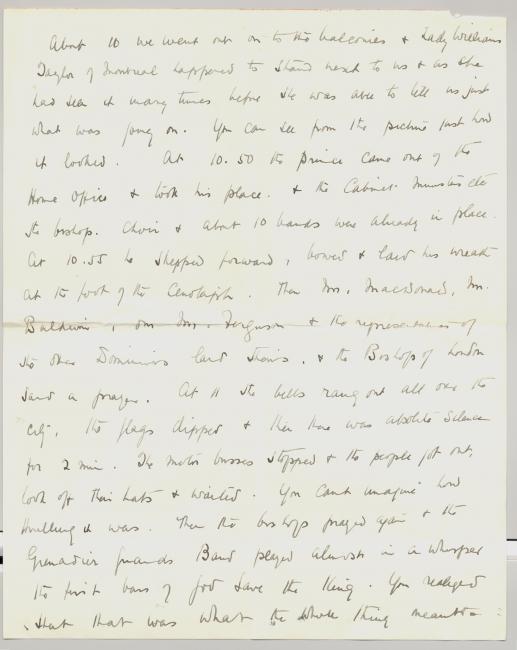 About 10 we went out on to the balconies & Lady Williams
Taylor of Montreal happened to stand next to us & as she
had seen it many times before she was able to tell us just
what was going on. You can see from the picture just how
it looked. At 10.50 the Prince came out of the
Home Office & took his place. & the Cabinet Ministers etc
the bishop. Choir & about 10 bands were already in place.
At 10.55 he stepped forward, bowed & laid his wreath
at the foot of the Cenotaph. Then Mr. Macdonald, Mr.
Baldwin, our Mr. Ferguson & the representatives of
the other Dominions laid theirs, & the Bishop of London
said a prayer. At 11 the bells rang out all over the
city, the flags dipped & then there was absolute silence
for 2 min. The motor busses stopped & the people got out,
took off their hats & waited. You can't imagine how
thrilling it was. Then the bishops prayed again & the
Grenadier Guards Band played almost in a whisper
the first bars of God Save the King. You realized
that that was what the whole thing meant -